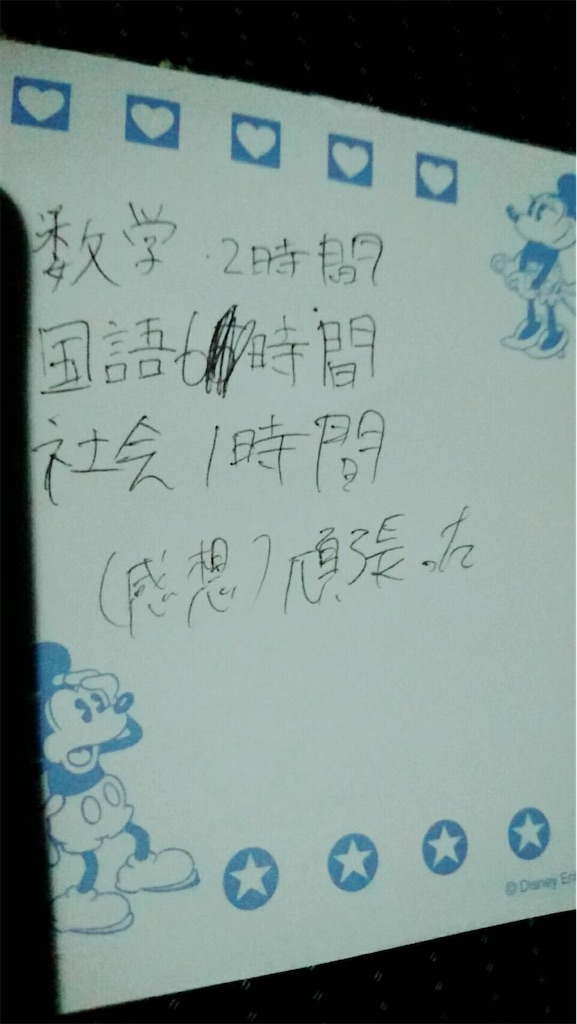 数学 2時間
国語6時間
社会 1時間
(感想)頑張った
© Disney En